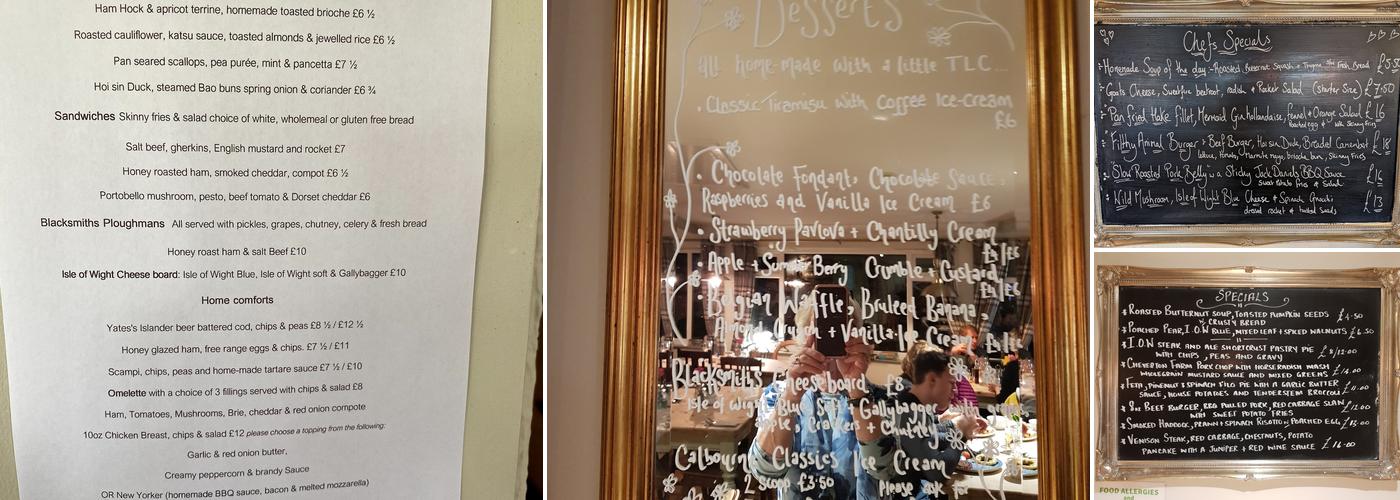 Ham Hock & apricot terrine, homemade toasted brioche £6 ½
Roasted cauliflower, katsu sauce, toasted almonds & jewelled rice £6 ½
Pan seared scallops, pea purée, mint & pancetta £7 ½
Hoi sin Duck, steamed Bao buns spring onion & coriander £6 ¾
Sandwiches Skinny fries & salad choice of white, wholemeal or gluten free bread
Salt beef, gherkins, English mustard and rocket £7
Honey roasted ham, smoked cheddar, compot £6 ½
Portobello mushroom, pesto, beef tomato & Dorset cheddar £6
Blacksmiths Ploughmans All served with pickles, grapes, chutney, celery & fresh bread
Honey roast ham & salt Beef £10
Isle of Wight Cheese board: Isle of Wight Blue, Isle of Wight soft & Gallybagger £10
Home comforts
Yates's Islander beer battered cod, chips & peas £8 ½ / £12 ½
Honey glazed ham, free range eggs & chips. £7 ½ / £11
Scampi, chips, peas and home-made tartare sauce £7 ½ / £10
Omelette with a choice of 3 fillings served with chips & salad £8
Ham, Tomatoes, Mushrooms, Brie, cheddar & red onion compote
10oz Chicken Breast, chips & salad £12 please choose a topping from the following:
Garlic & red onion butter,
Creamy peppercorn & brandy Sauce
OR New Yorker (homemade BBQ sauce, bacon & melted mozzarella)
Desserts
All home-made with a little TLC...
• Classic Tiramisu with Coffee Ice-Cream
£6
• Chocolate Fondant, Chocolate Sauce,
Raspberries and Vanilla Ice Cream £6
• Strawberry Pavlova + Chantilly Cream
£5/£6
• Apple + Summer Berry Crumble + Custard
£4/£6
• Belgian Waffle, Bruleed Banana,
Almond Crunch + Vanilla Ice Cream
Blacksmiths Cheeseboard £8
Isle of Wight Blue, Soft + Gallybagger with grapes
Apple, Crackers + Chutney
Calbourne Classics Ice Cream
2 Scoop £3.50 Please ask for
Chefs Specials
Homemade Soup of the day - Roasted Butternut Squash + Thyme with Fresh Bread £5.50
Goats Cheese, Sweetfire beetroot, radish + Rocket Salad (Starter Size) £7.50
Pan fried Hake Fillet, Mermaid Gin hollandaise, fennel + Orange Salad £16
Poached egg + Skinny fries
Filthy Animal Burger - Beef Burger, Hoi sin Duck, Breaded Camembert £18
lettuce, tomato, Marmite mayo, brioche bun, Skinny Fries
Slow Roasted Pork Belly in a Sticky Jack Daniels BBQ Sauce £16
Sweet Potato fries & Salad
Wild Mushroom, Isle of Wight Blue Cheese & Spinach Gnocchi £13
dressed rocket & toasted seeds
SPECIALS
* ROASTED BUTTERNUT SOUP, TOASTED PUMPKIN SEEDS £4.50
& CRUSTY BREAD
* POACHED PEAR, I.O.W BLUE, MIXED LEAF + SPICED WALNUTS £6.50
* I.O.W STEAK AND ALE SHORTCRUST PASTRY PIE £8/12.00
WITH CHIPS, PEAS AND GRAVY
* CHEVERTON FARM PORK CHOP WITH HORSERADISH MASH £14.00
WHOLEGRAIN MUSTARD SAUCE AND MIXED GREENS
* FETA, PINENUT & SPINACH FILO PIE WITH A GARLIC BUTTER £11.00
SAUCE, HOUSE POTATOES AND TENDERSTEM BROCCOLI
* 8oz BEEF BURGER, BBQ PULLED PORK, RED CABBAGE SLAW £12.00
WITH SWEET POTATO FRIES
* SMOKED HADDOCK, PRAWN + SPINACH RISOTTO, POACHED EGG £13.00
* VENISON STEAK, RED CABBAGE, CHESTNUTS, POTATO £16.00
PANCAKE WITH A JUNIPER + RED WINE SAUCE
FOOD ALLERGIES
and